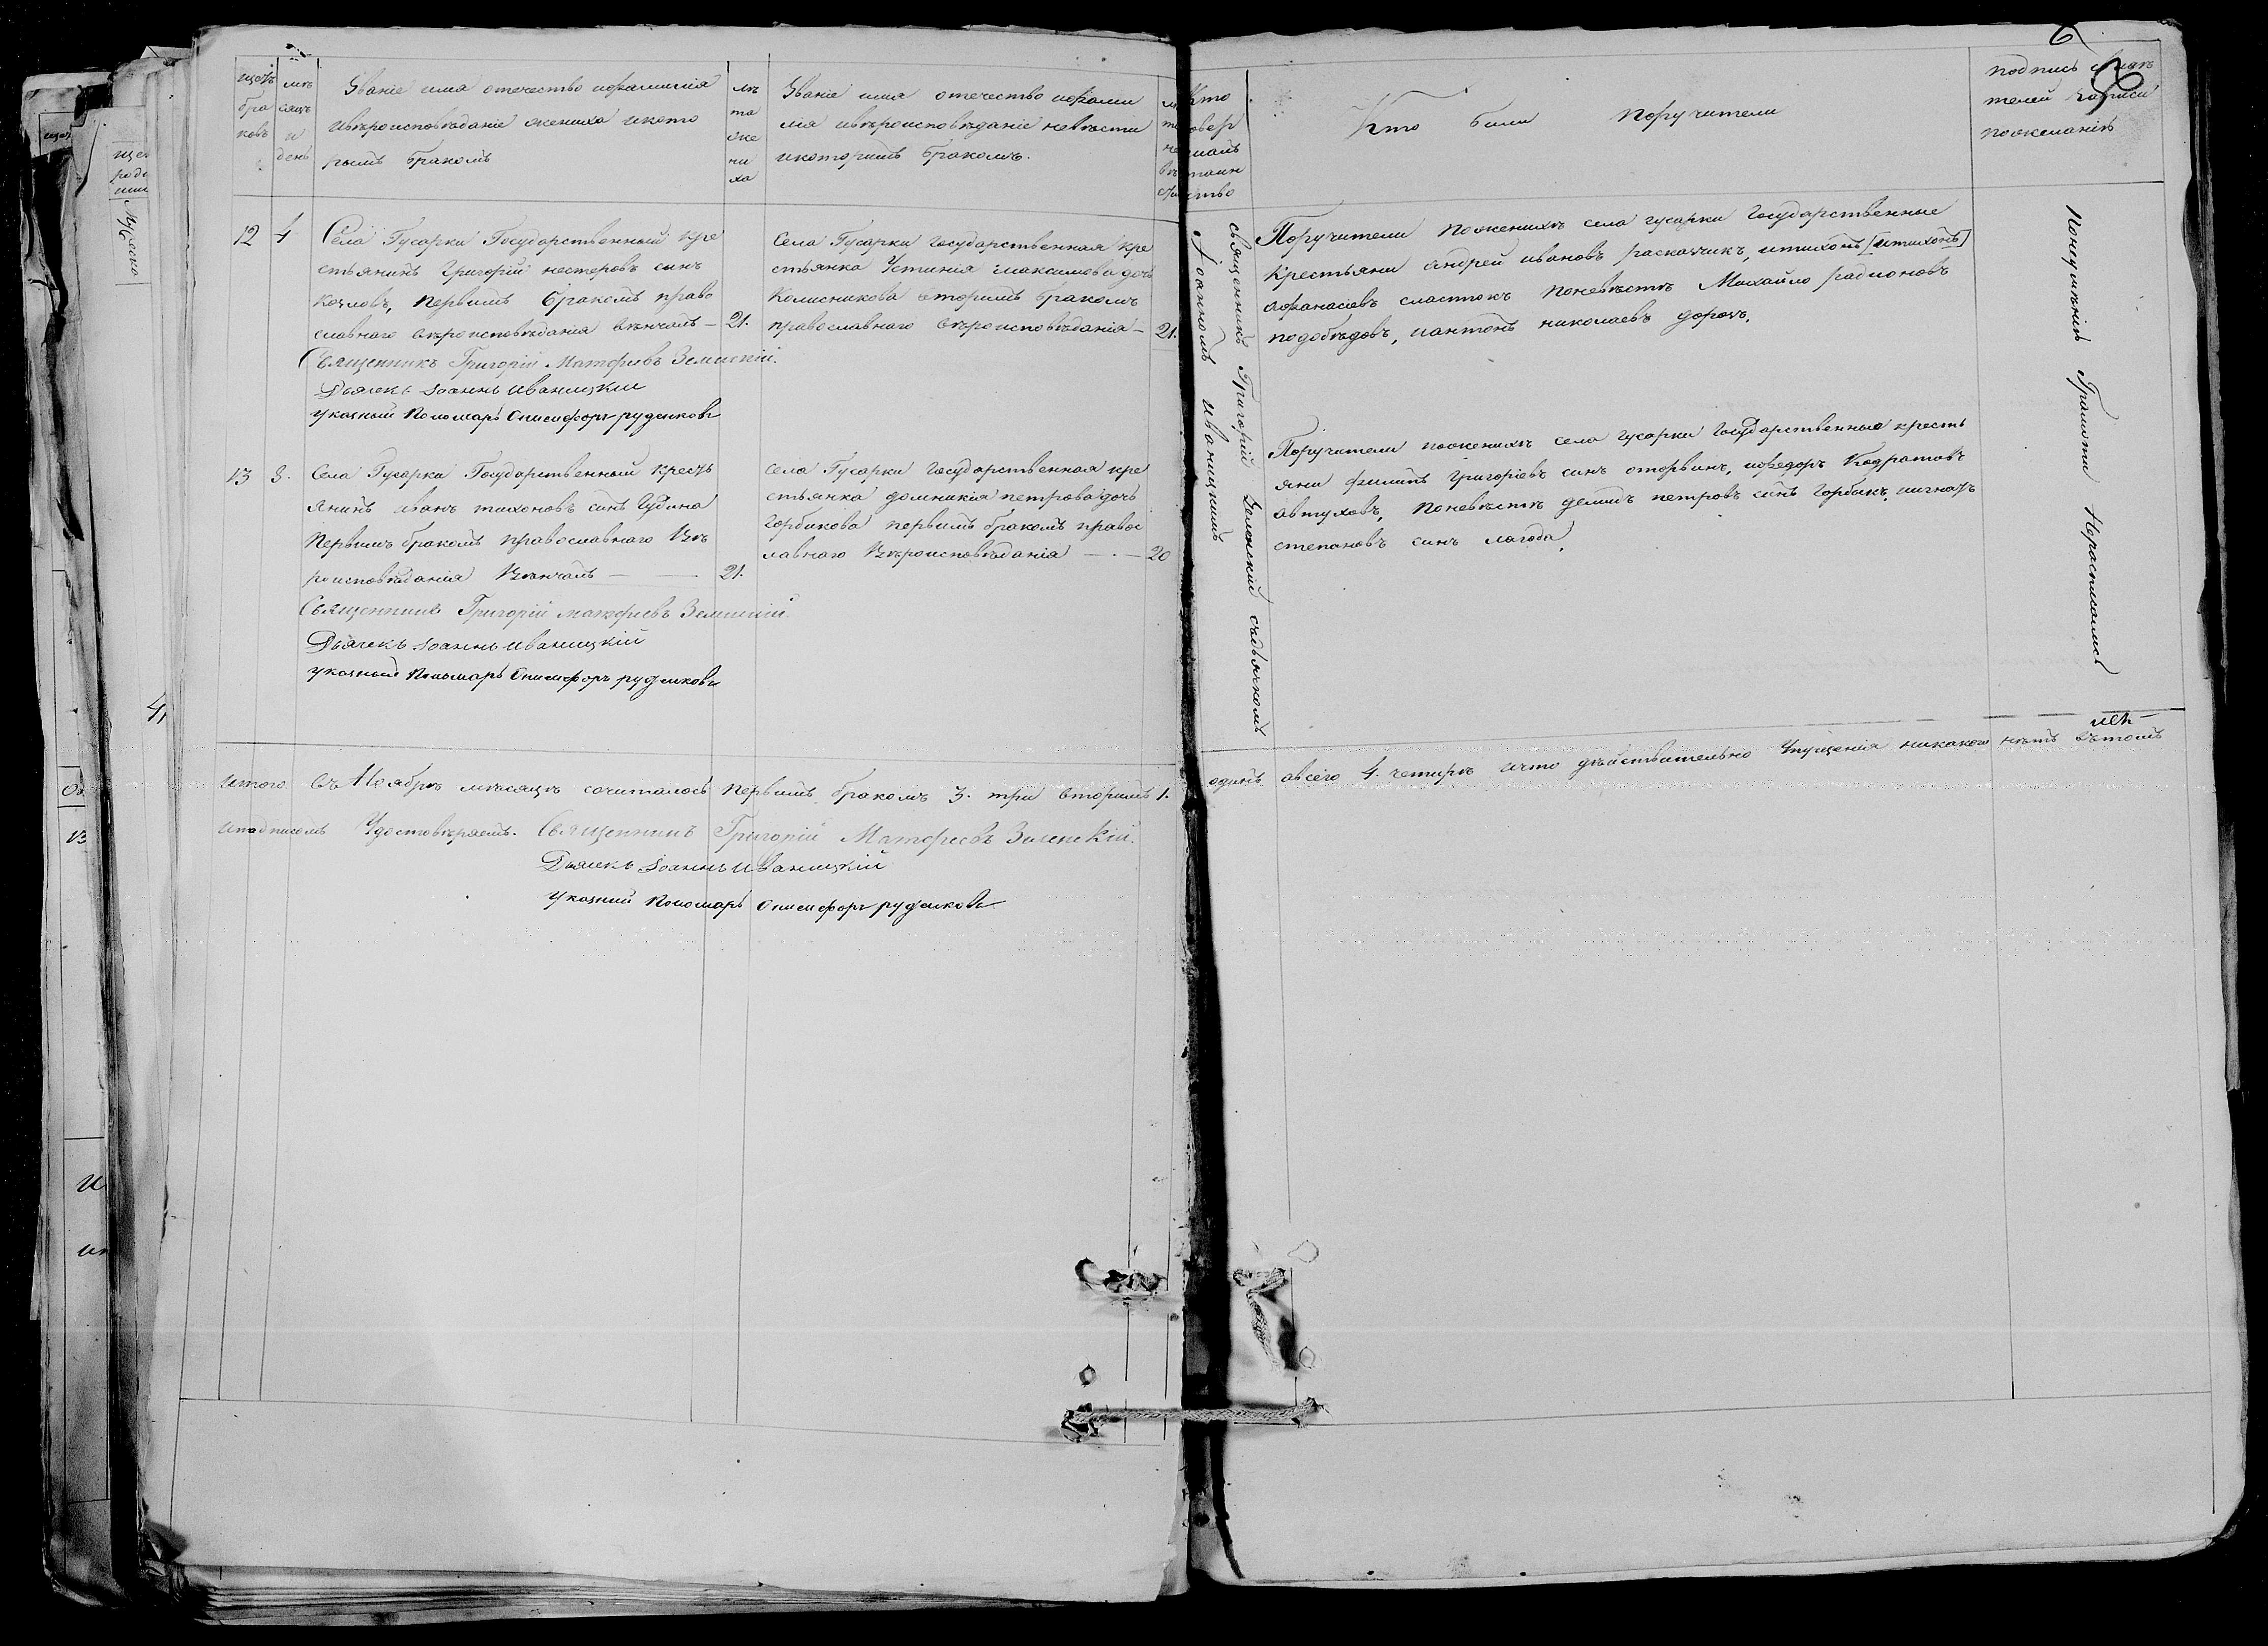 щетъ браковъ
мѣсяцъ и день
Званіе имя отечество ифамилія
ивѣроисповѣданіе жениха икото
рымъ бракомъ
лѣта жениха
Званіе имя отечество ифами
лія ивѣроисповѣданіе невѣсти
икоторимъ бракомъ.
Кто совершалъ таинство
Кто били Поручители
подпись свидѣ
телей записи
пожеланію
6
12 4
Села Гусарки Государственный кре
стьянинъ Григорій нестеровъ синъ
Козловъ, Первимъ бракомъ право
славнаго вѣроисповѣданія вѣнчалъ — 21.
Священникъ Григорій Матфиевъ Зеленскій.
Дьячекъ Іоаннъ Иваницкій
указный Пономарь Онисифоръ руденковъ
Села Гусарки Государственная кре
стьянка Устинія максимова дочь
Колисникова вторимъ бракомъ
православнаго вѣроисповѣданія — 21.
священникъ Григорій Зеленскій съдьячкомъ
Іоанномъ Иваницкимъ
Поручители поженихѣ села гусарки Государственные
крестьяни андрей ивановъ расказчикъ, итихонъ [итихонъ]
афанасіевъ сластюкъ поневѣстѣ Михайло радионовъ
подобѣдовъ, иантонъ николаевъ дорошъ.
Понеумѣнію Грамоти Нерасписались
13 8.
Села Гусарки Государственный кресть
янинъ иванъ тихоновъ синъ Губина
Первимъ бракомъ православнаго Вѣ
роисповѣданія Вѣнчалъ — 21.
Священникъ Григорій матфиевъ Зеленскій.
Дьячекъ Іоаннъ Иваницкій
указный Пономарь Онисифоръ руденковъ
села Гусарки Государственная кре
стьянка домникія петрова дочь
Горбикова первимъ бракомъ правос
лавнаго Вѣроисповѣданія — 20
Поручители поженихѣ села гусарки Государственные кресть
яни филипъ григоріевъ синъ оторвинъ, ифедоръ Кодратовъ
автуховъ, поневѣстѣ демидъ петровъ синъ горбикъ, иигнатъ
степановъ синъ лагода.
итого Въ Ноябрѣ мѣсяцѣ сочиталось первимъ бракомъ 3. три вторимъ 1. одинъ авсего 4. четирѣ ичто дѣйствительно упущенія никакого нѣтъ вътомъ
иподписомъ Удостовѣряетъ. Священникъ Григорій Матфиевъ Зеленскій.
Дьячекъ Іоаннъ Иваницкій
Указний Пономарь Онисифоръ руденковъ